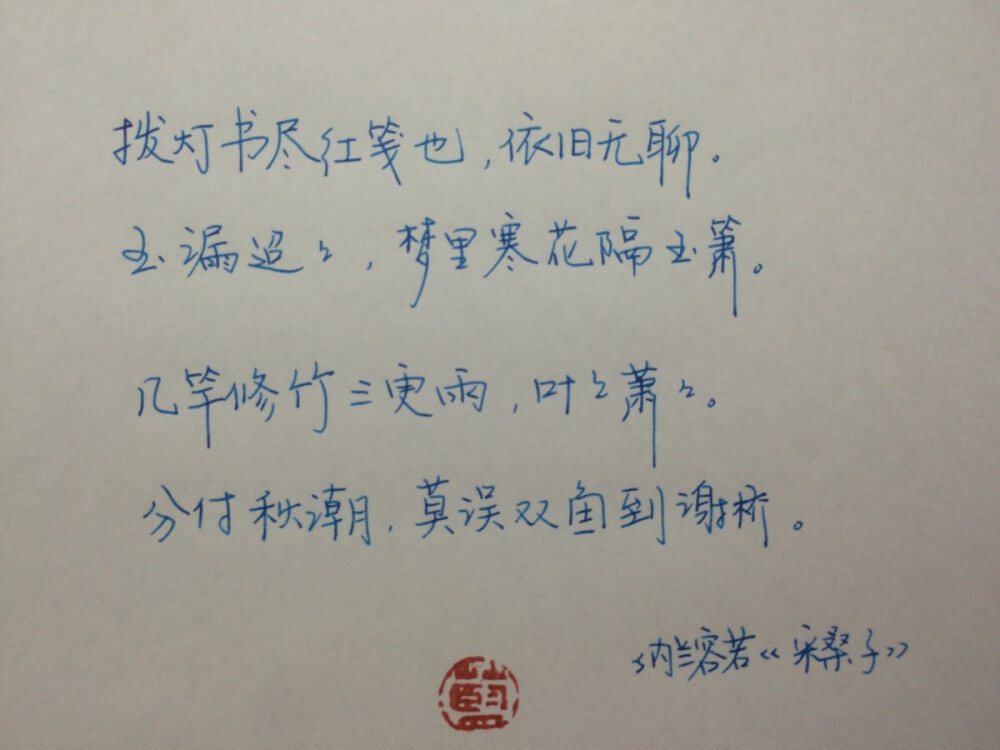 拨灯书尽红笺也，依旧无聊。
玉漏迢々，梦里寒花隔玉箫。
几竿修竹三更雨，叶々萧々。
分付秋潮，莫误双鱼到谢桥。
纳兰容若《采桑子》
藍